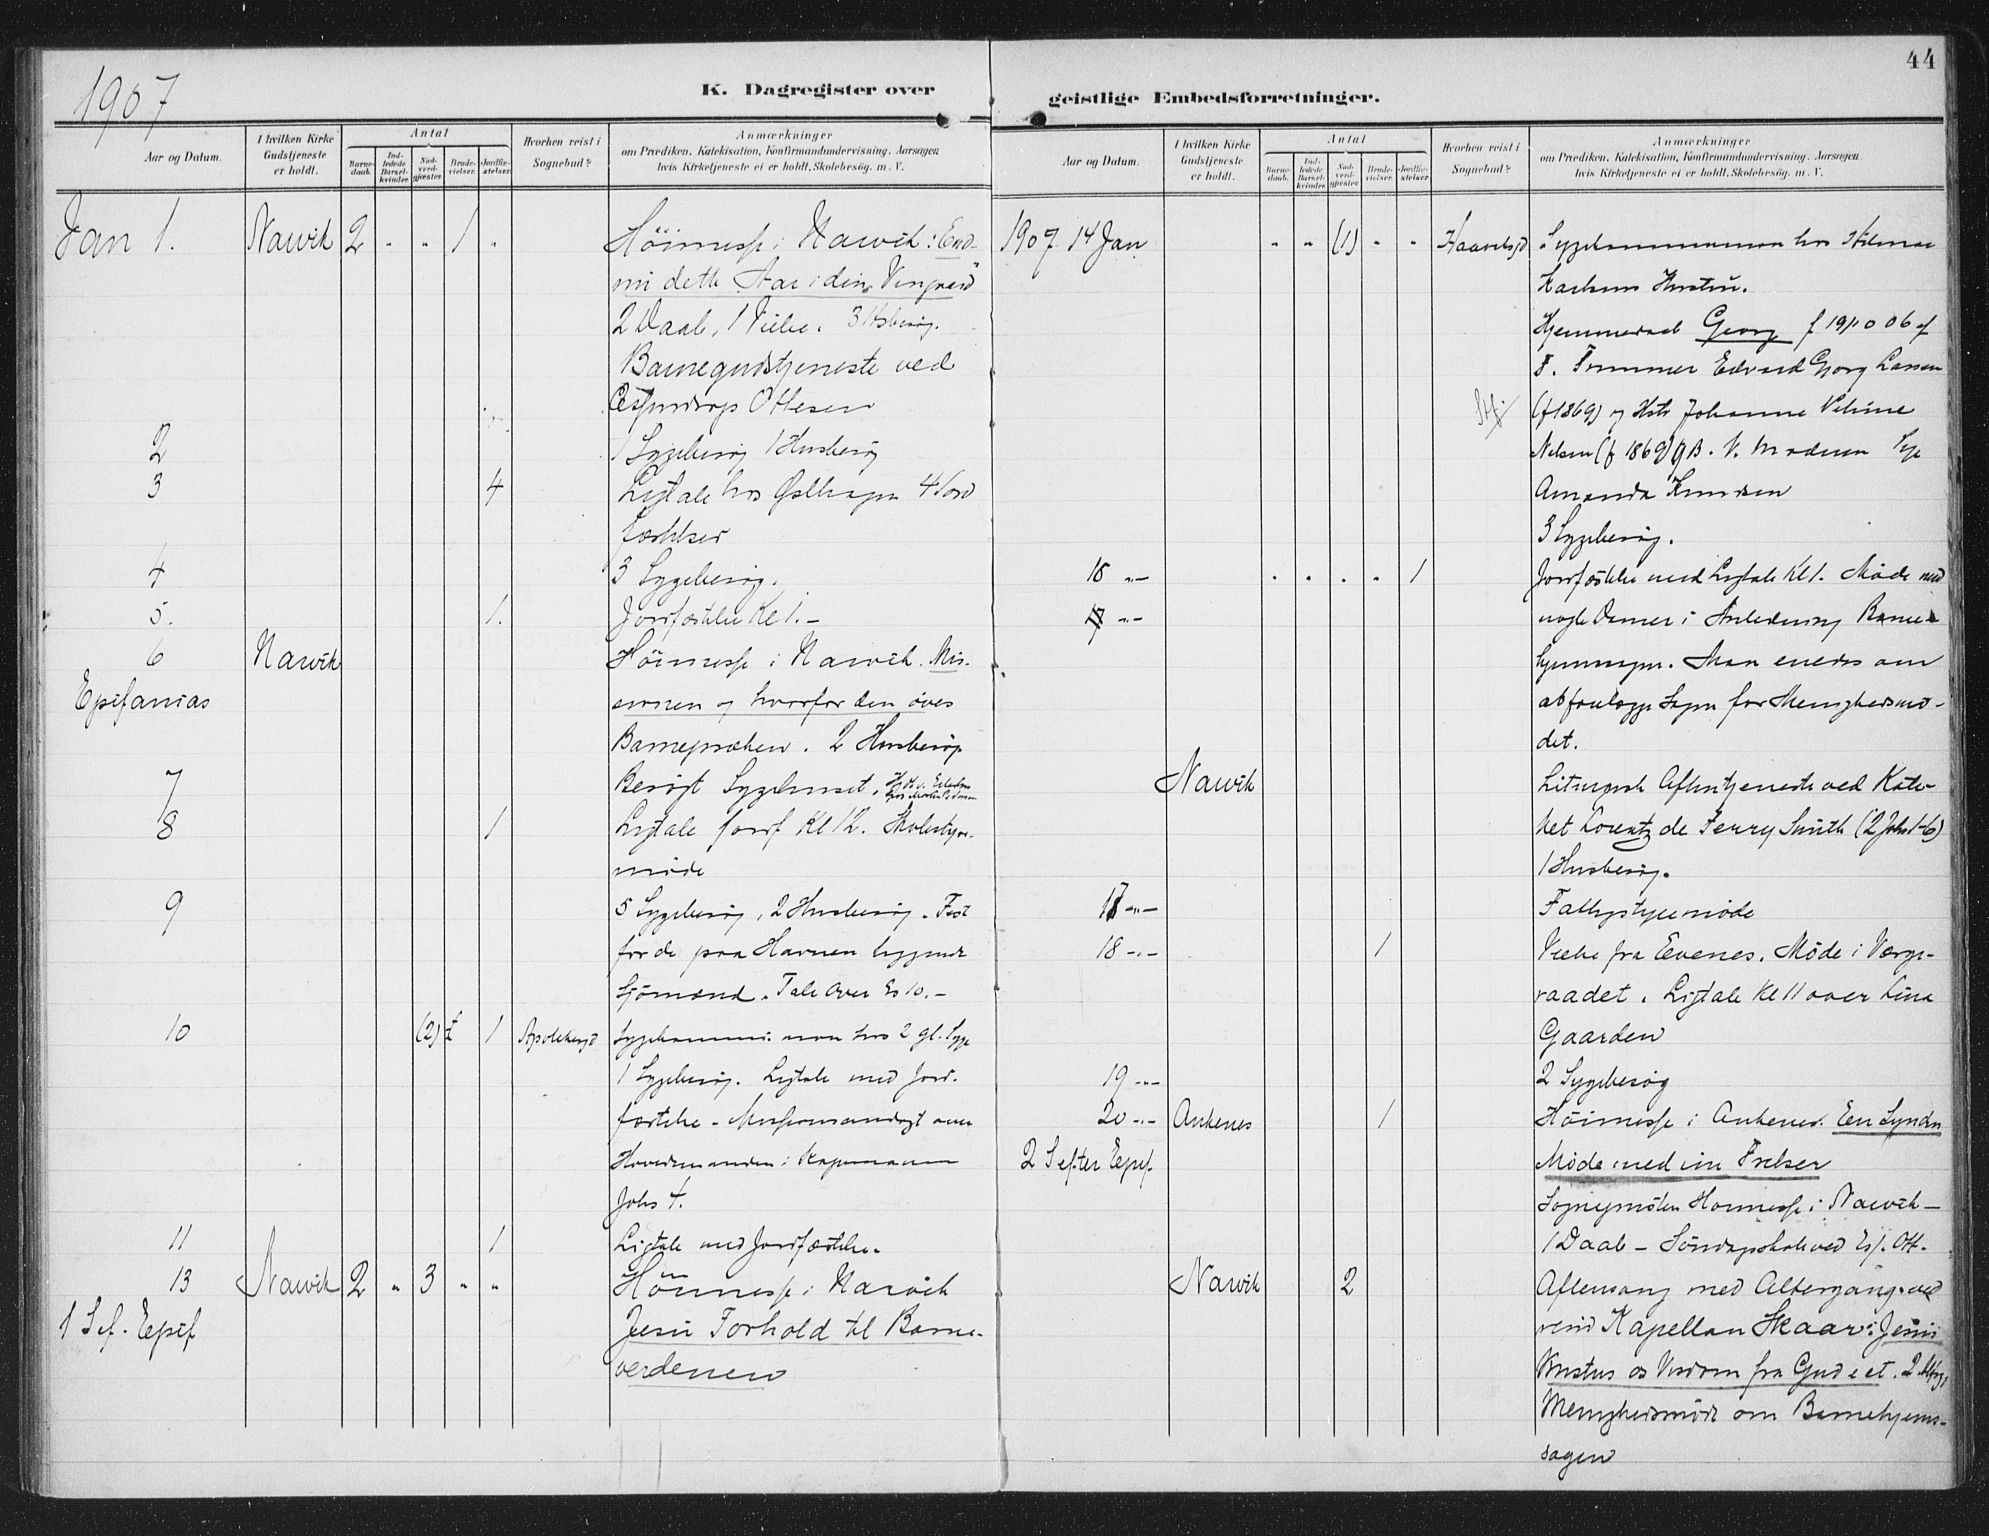 1907
K. Dagregister over
Aar og Datum.
I hvilken Kirke Gudstjeneste er holdt.
Antal
Barnedaab.
Indledede Barselkvinder.
Nadverdgjester.
Brudevielser.
Jordfæstelser.
Hvorhen reist i Sognebud?
Anmærkninger
om Prædiken, Katekisation, Konfirmandundervisning, Aarsagen
hvis Kirketjeneste ei er holdt, Skolebesøg. m. V.
Jan 1. Narvik 2 " " 1 " Höimesse i Narvik: End-
nu dette Aar i din Vingaard
2 Daab, 1 Vielse. 3 Hsbesøg.
Barnegudstjeneste ved
Ottesen
2 1 Sygebesøg 1 Husbesøg
3 4 Ligtale hos 4 Jord
fæstelser
4 3 Sygebesøg.
5. 1. Jordfæstelse Kl 1. –
6 Narvik Höimesse i Narvik. Mis-
Epifanias sionen og hvorfor den øves
Barnepræken. 2 Husbesøg
7 Besøgt Sygehuset.
8 1 Ligtale Jordf Kl 12. Skolestyre-
møde
9 5 Sygebesøg, 2 Husbesøg. Fest
for de paa Havnen liggende
Sjömænd. Tale over Es 10. –
10 (2) 1 Sygekommunion hos 2 gl. Syge
1 Sygebesøg. Ligtale med Jord-
fæstelse – Missionsandagt over
Høvedsmanden i Kapernaum
Johs 4.
11 1 Ligtale med Jordfæstelse.
13 Narvik 2 " 3 " " Höimesse i Narvik
1 S ef. Epif Jesu Forhold til Barne-
verdenen
44
geistlige Embedsforretninger.
Aar og Datum.
I hvilken Kirke Gudstjeneste er holdt.
Antal
Barnedaab.
Indledede Barselkvinder.
Nadverdgjester.
Brudevielser.
Jordfæstelser.
Hvorhen reist i Sognebud?
Anmærkninger
om Prædiken, Katekisation, Konfirmandundervisning, Aarsagen
hvis Kirketjeneste ei er holdt, Skolebesøg. m. V.
1907 14 Jan " " (1) " " Sygekommunion hos Hilmar
Karlsens Hustru.
Hjemmedaab Georg f 19/10 06 af
F. Tømmer Edvard Georg Larsen
(f 1869) og Hstr Johanne
Nilsen (f 1869) V. Moderen
Amanda Knudsen
3 Sygebesøg.
15 " – 1 Jordfæstelse med Ligtale Kl 1. Møde med
nogle Damer i Anledning Barne-
hjemssagen. Man enedes om
at forelægge Sagen for Menighedsmö-
det.
Narvik Liturgisk Aftentjeneste ved Kate-
ket Lorentz de Ferry Smith (2 Joh 1-6)
1 Husbesøg.
17 " – Fattigstyremøde
18 " – 1 Vielse fra Evenes. Møde i Værge-
raadet. Ligtale Kl 11 over Lina
Gaarden
19 " – 2 Sygebesøg
20 " – Ankenes 1 Höimesse i Ankenes. Een Synders
2 S efter Epif. Møde med sin Frelser
Sogneprästen Höimesse i Narvik –
1 Daab – Söndagsskole ved Ott.
Narvik 2 Aftensang med Altergang ved
resid Kapellan Skaar: Jesus
Kristus os Visdom fra Gud
Menighedsmöde om Barnehjems-
sagen